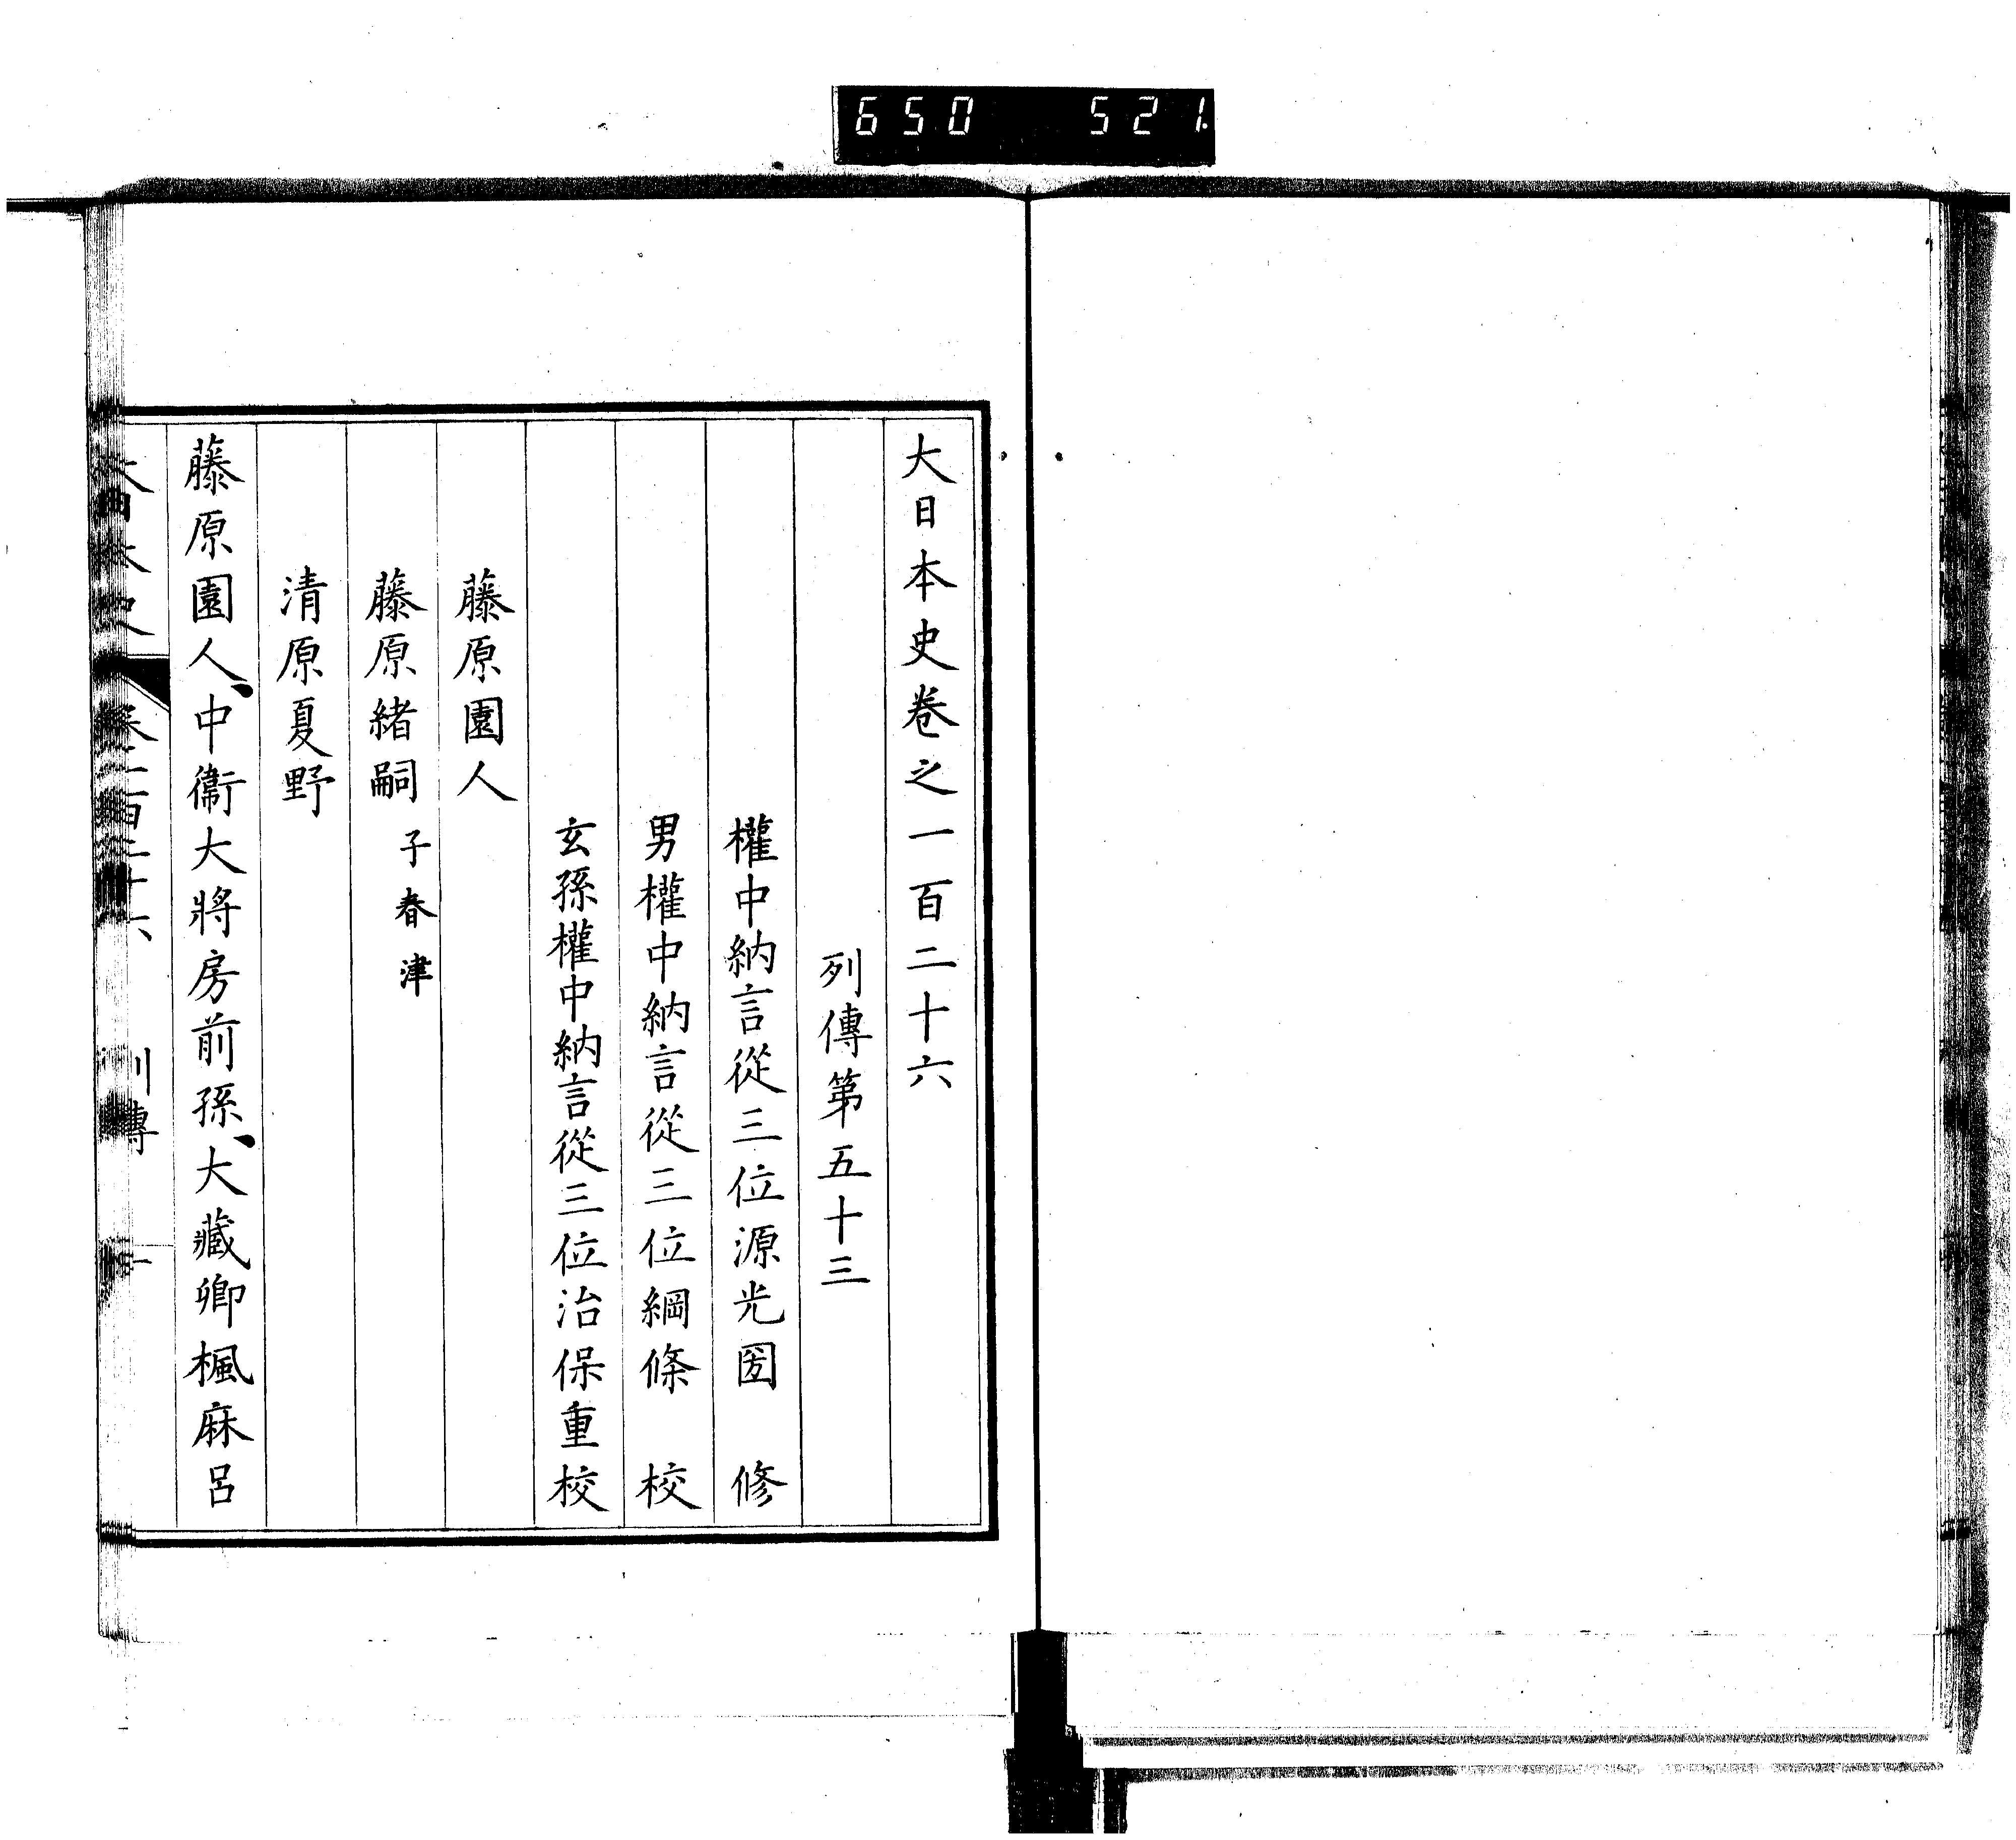 650 521.
大日本史卷之一百二十六
列傳第五十三
權中納言從三位源光圀 修
男權中納言從三位綱條 校
玄孫權中納言從三位治保重校
藤原園人
藤原緒嗣 子春津
清原夏野
藤原園人、中衞大將房前孫、大藏卿楓麻呂